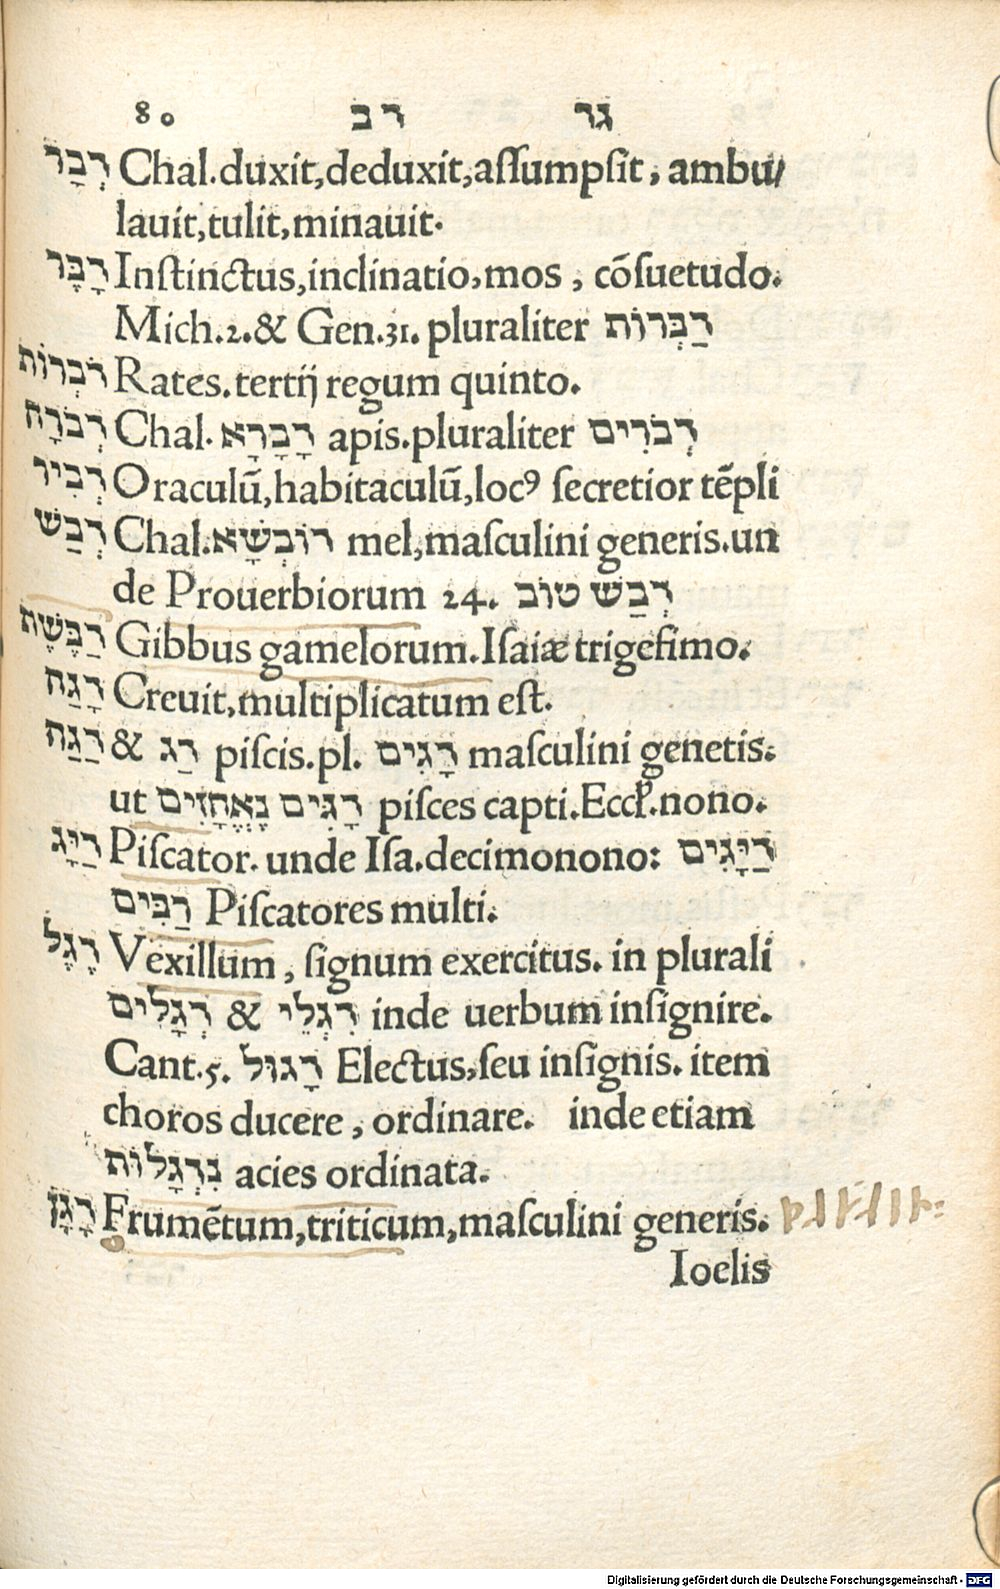 80 דב גד
דְבַר Chal.duxit,deduxit,aſſumpſit, ambu/
lauit,tulit,minauit.
דָבָּר Inſtinctus,inclinatio,mos, cõſuetudo.
Mich.2.& Gen.31. pluraliter דַבְּרוֹת
דֹבְרוֹת Rates.tertij regum quinto.
דְבֹרָה Chal. דָבָרָא apis.pluraliter דְבֹרִים
דְבִיר Oraculũ,habitaculũ,locꝰ ſecretior tẽpli
דְבַשׁ Chal.דוּבְשָׁא mel,maſculini generis.un
de Prouerbiorum 24. דְבַשׁ טוֹב
דַבֶּשֶׁת Gibbus gamelorum.Iſaiæ trigeſimo.
דָגַה Creuit,multiplicatum eſt.
דַגַה & דַג piſcis.pl. דָגִים maſculini genetis.
ut דָגִים נֶאֱחָזִים piſces capti.Eccl.nono.
דַיָּג Piſcator. unde Iſa.decimonono: דַיָּגִים
רַבִּים Piſcatores multi.
דֶגֶל Vexillum, ſignum exercitus. in plurali
דְגָלִים & דִגְלֵי inde uerbum inſignire.
Cant.5. דָגוּל Electus,ſeu inſignis. item
choros ducere, ordinare. inde etiam
נִדְגָלוֹת acies ordinata.
דָגָן Frumẽtum,triticum,maſculini generis.
Ioelis
Digitalisierung gefördert durch die Deutsche Forschungsgemeinschaft - DFG